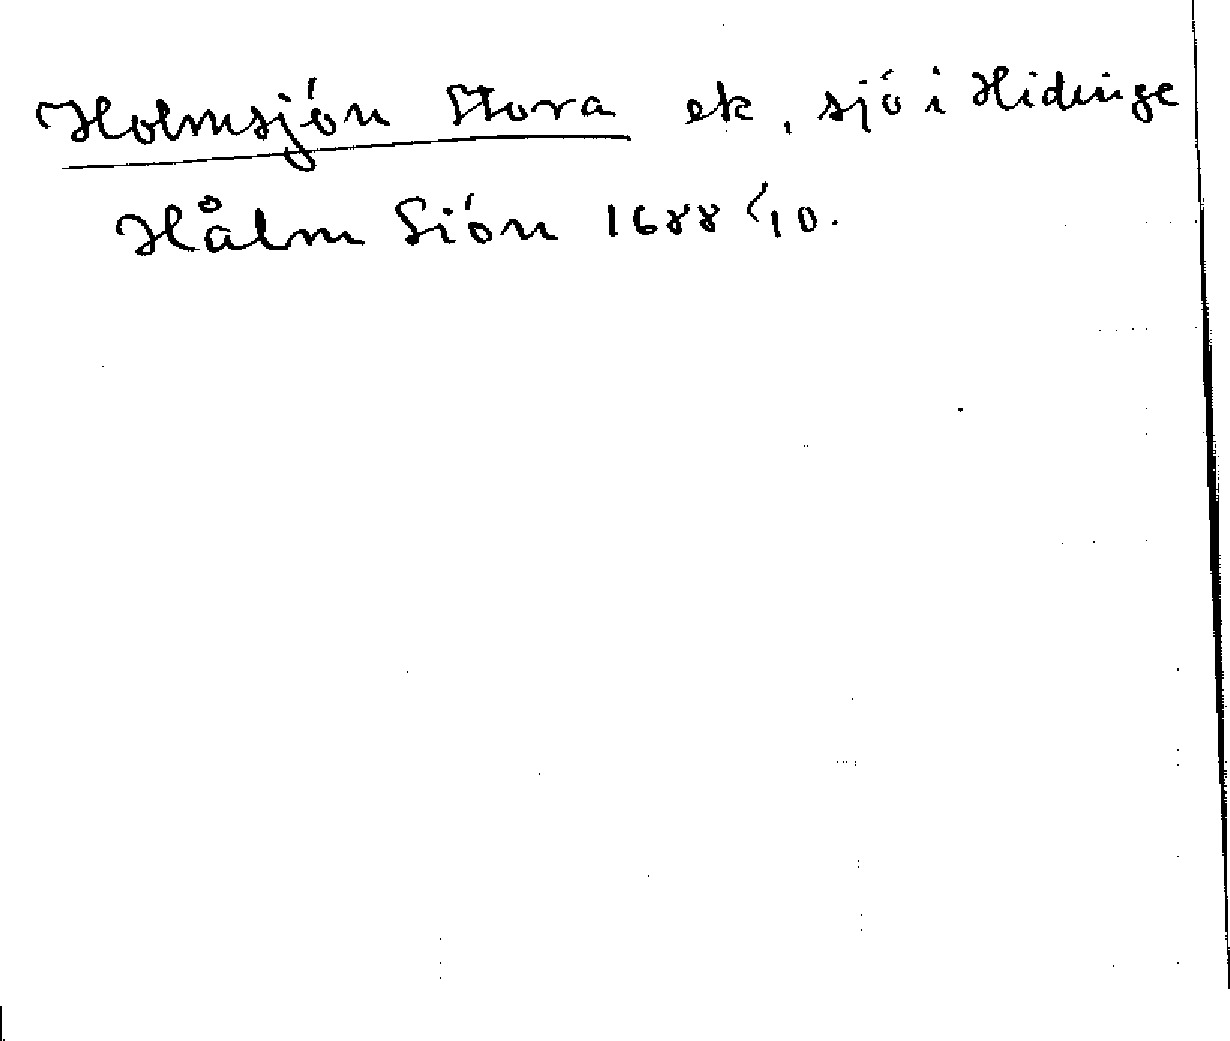 Holmsjön Stora ek, sjö i Hidinge
Hålm Siön 1688 1/10.